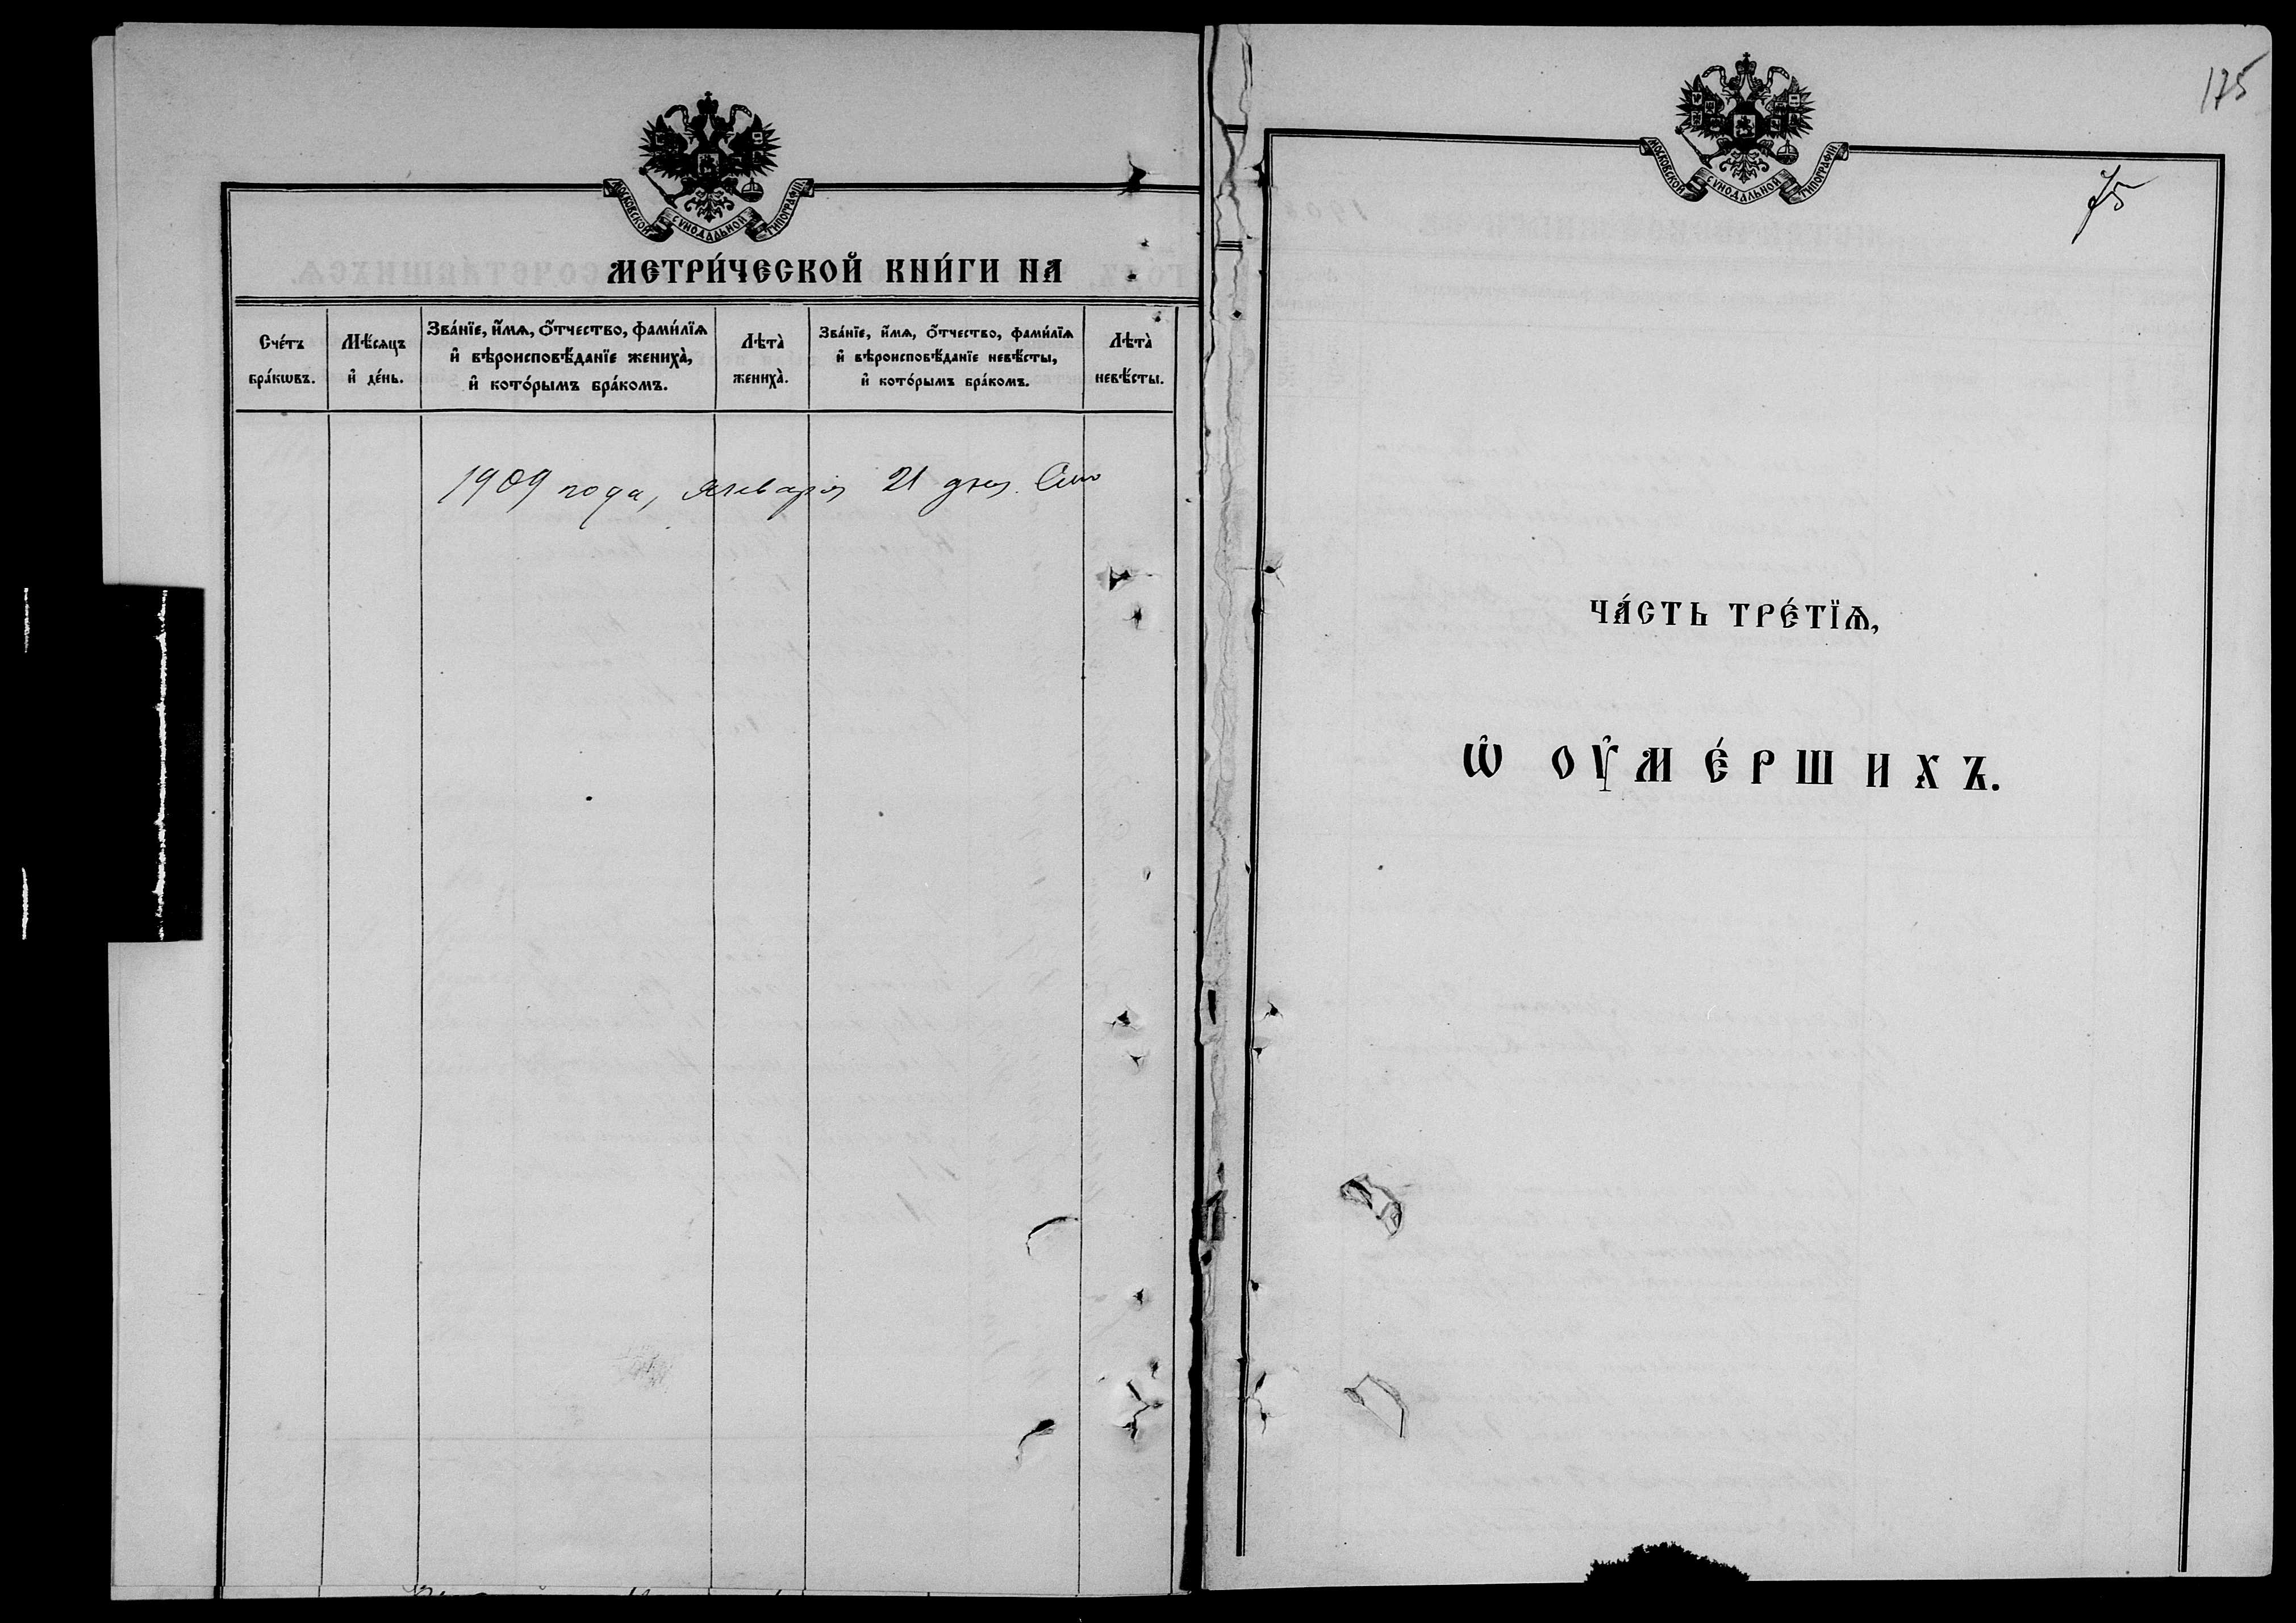 МОСКОВСКОЙ СѴНОДАЛЬНОЙ ТИПОГРАФІИ.
МЕТРИ́ЧЕСКОЙ КНИ́ГИ НА
Сче́тъ бра́кѡвъ.
Мѣ́сяцъ и҆ де́нь.
Зва́нїе, и҆́мѧ, ѻ҆́тчество, фами́лїѧ
и҆ вѣроисповѣ́данїе жениха̀,
и҆ кото́рымъ бра́комъ.
Лѣта̀ жениха̀.
Зва́нїе, и҆́мѧ, ѻ҆́тчество, фами́лїѧ
и҆ вѣроисповѣ́данїе невѣ́сты,
и҆ кото́рымъ бра́комъ.
Лѣта̀ невѣ́сты.
1909 года, Января 21 дня. Сию
175
МОСКОВСКОЙ СѴНОДАЛЬНОЙ ТИПОГРАФІИ.
75
ЧА́СТЬ ТРЕ́ТЇѦ,
Ѡ҆ ОУ҆МЕ́РШИХЪ.